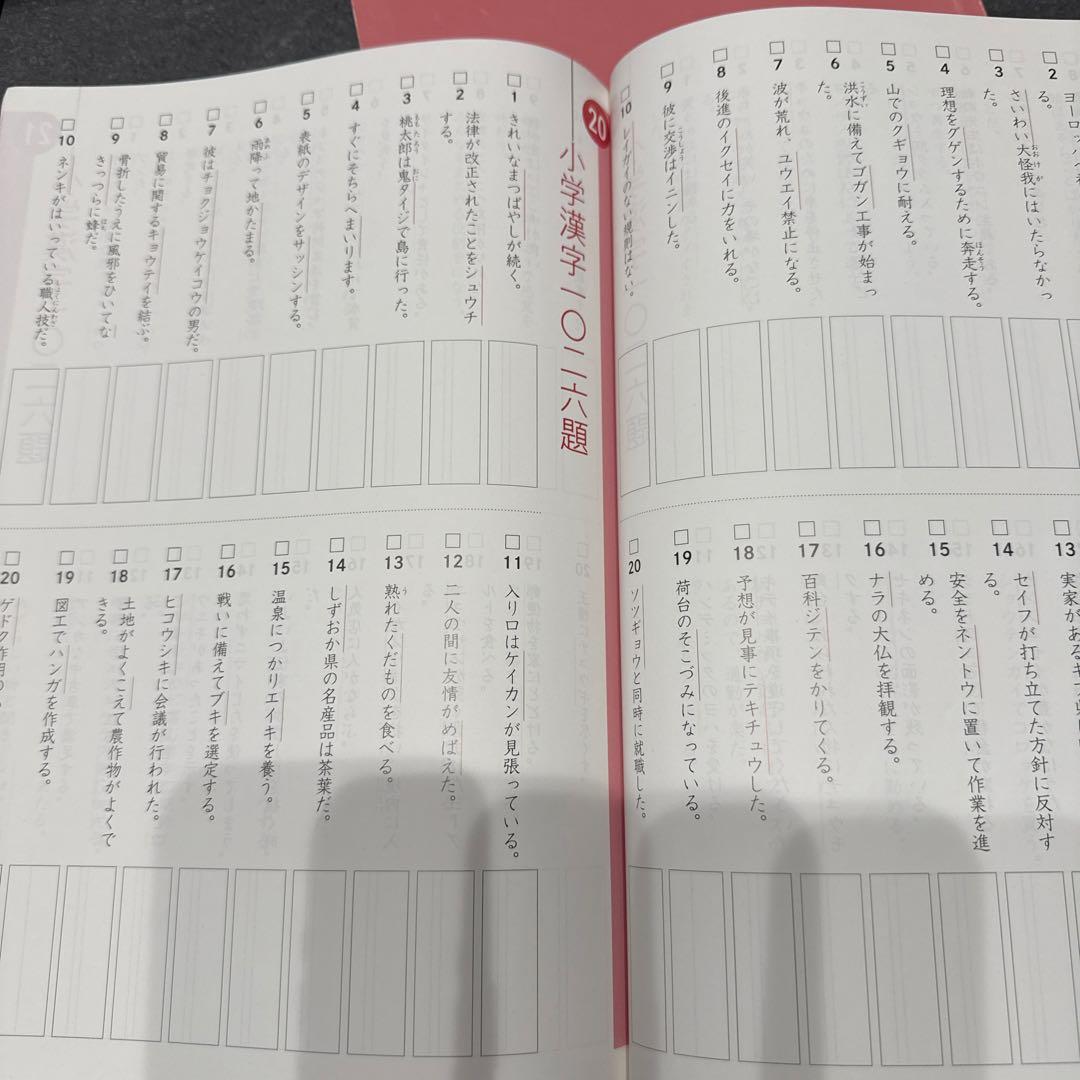 2
ヨーロッパ
る。
3
さいわい大怪我にはいたらなかっ
おおけが
た。
4
理想をグゲンするために奔走する。
ほんそう
5
山でのクギョウに耐える。
6
洪水に備えてゴガン工事が始まっ
こうずい
た。
7
波が荒れ、ユウエイ禁止になる。
8
後進のイクセイに力をいれる。
9
彼に交渉はイニンした。
こうしょう
10
レイガイのない規則はない。
13
実家がある
14
セイフが打ち立てた方針に反対す
る。
15
安全をネントウに置いて作業を進
める。
16
ナラの大仏を拝観する。
17
百科ジテンをかりてくる。
18
予想が見事にテキチュウした。
19
荷台のそこづみになっている。
20
ソツギョウと同時に就職した。
20
小学漢字一〇二六題
1
きれいなまつばやしが続く。
2
法律が改正されたことをシュウチ
する。
3
桃太郎は鬼タイジで島に行った。
ももたろう
おに
4
すぐにそちらへまいります。
5
表紙のデザインをサッシンする。
6
雨降って地かたまる。
7
彼はチョクジョウケイコウの男だ。
8
貿易に関するキョウテイを結ぶ。
9
骨折したうえに風邪をひいてな
きっつらに蜂だ。
はち
10
ネンキがはいっている職人技だ。
しょくにんわざ
11
入り口はケイカンが見張っている。
12
二人の間に友情がめばえた。
13
熟れたくだものを食べる。
う
14
しずおか県の名産品は茶葉だ。
15
温泉につかりエイキを養う。
16
戦いに備えてブキを選定する。
17
ヒコウシキに会議が行われた。
18
土地がよくこえて農作物がよくで
きる。
19
図工でハンガを作成する。
20
ゲドク作用の